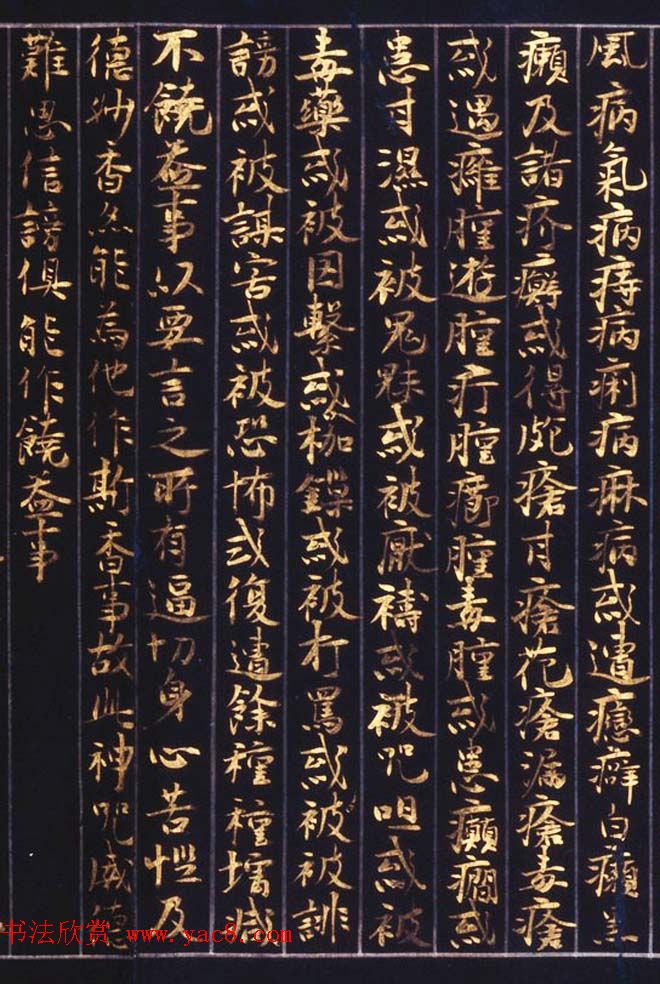 風病氣病痔病痢病麻病或遭癔癖白癩黑
癩及諸疥癬或得皰瘡甘瘡花瘡漏瘡毒瘡
或遇癰腫遊腫疔腫癤腫毒腫或患癲癇或
患甘濕或被鬼魅或被厭禱或被咒咀或被
毒藥或被因繫或枷鏁或被打罵或被被誹
謗或被謀害或被恐怖或復遭餘種種
不饒益事以要言之所有逼切身心苦惱及
德妙香然能為他作斯香事故此神咒威德
難思信謗俱能作饒益事
书法欣赏 www.yac8.com